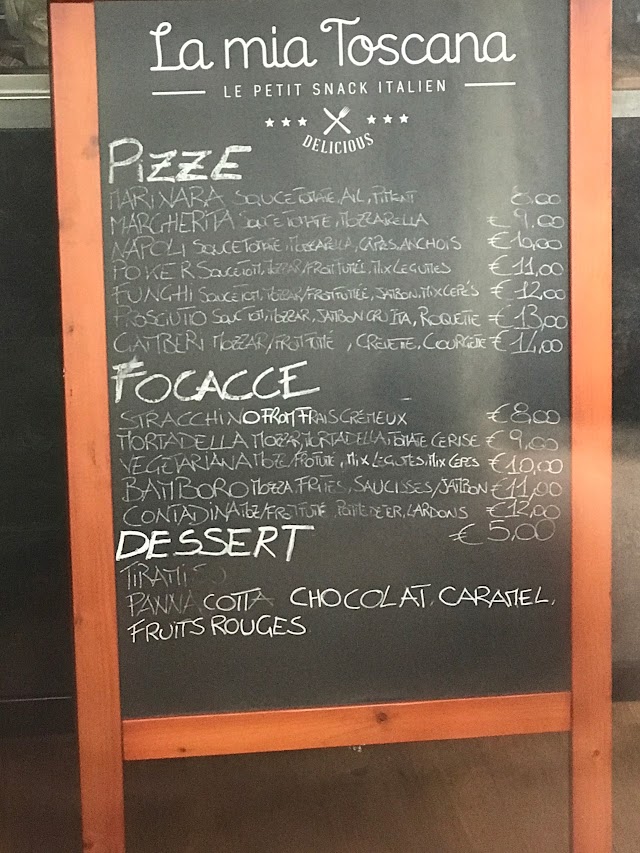 La mia Toscana
LE PETIT SNACK ITALIEN
DELICIOUS
PIZZE
MARINARA SAUCE TOMATE, AIL, PIMENT 8,00
MARGHERITA SAUCE TOMATE, MOZZARELLA € 9,00
NAPOLI SAUCE TOMATE, MOZZARELLA, CAPRES, ANCHOIS €10,00
POKER SAUCE TOM, MOZZAR/FROIT FUMÉE, MIX LEGUMES €11,00
FUNGHI SAUCE TOM, MOZZAR/FROIT FUMÉE, JAMBON, MIX CEPÉS €12,00
PROSCIUTTO SAUC TOM, MOZZAR, JAMBON CRU ITA, ROQUETTE €13,00
GAMBERI MOZZAR/FROIT FUMÉ, CREVETTE, COURGETTE €14,00
FOCACCE
STRACCHINO FROM FRAIS CRÉMEUX €8,00
MORTADELLA MOZZAR, MORTADELLA TOMATE CERISE € 9,00
VEGETARIANA MOZZ/FROFUMÉ, MIX LEGUMES, MIX CEPES €10,00
BAMBORO MOZZA, FRITES, SAUCISSES/JAMBON €11,00
CONTADINA MOZ/FROIT FUMÉ, POMME DE TER, LARDONS €12,00
DESSERT € 5,00
TIRAMISO
PANNA COTTA CHOCOLAT, CARAMEL,
FRUITS ROUGES